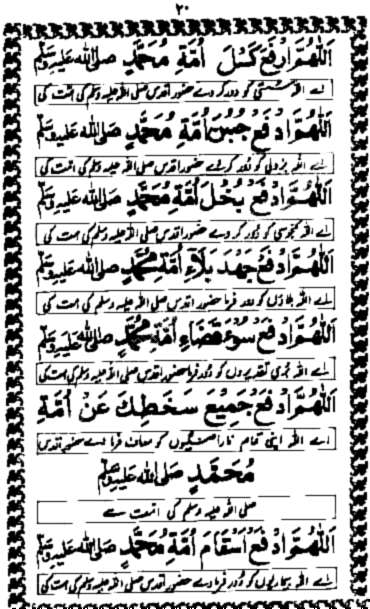 ۲۰
اَللّٰهُمَّ ادْفَعْ كَسَلَ اُمَّةِ مُحَمَّدٍ صلى الله عليه وسلم
اے اللہ سستی کو دور کر دے حضور اقدس صلی اللہ علیہ وسلم کی امت کی
اَللّٰهُمَّ ادْفَعْ جُبْنَ اُمَّةِ مُحَمَّدٍ صلى الله عليه وسلم
اے اللہ بزدلی کو دور کر دے حضور اقدس صلی اللہ علیہ وسلم کی امت کی
اَللّٰهُمَّ ادْفَعْ بُخْلَ اُمَّةِ مُحَمَّدٍ صلى الله عليه وسلم
اے اللہ کنجوسی کو دور کر دے حضور اقدس صلی اللہ علیہ وسلم کی امت کی
اَللّٰهُمَّ ادْفَعْ جَهْدَ بَلَآءِ اُمَّةِ مُحَمَّدٍ صلى الله عليه وسلم
اے اللہ بلاؤں کو دور فرما حضور اقدس صلی اللہ علیہ وسلم کی امت کی
اَللّٰهُمَّ ادْفَعْ سُوْءَ قَضَاءِ اُمَّةِ مُحَمَّدٍ صلى الله عليه وسلم
اے اللہ بری تقدیروں کو دور فرما حضور اقدس صلی اللہ علیہ وسلم کی امت کی
اَللّٰهُمَّ ادْفَعْ جَمِيْعَ سَخَطِكَ عَنْ اُمَّةِ
اے اللہ اپنی تمام ناراضگیوں کو معاف فرما دے حضور اقدس
مُحَمَّدٍ صلى الله عليه وسلم
صلی اللہ علیہ وسلم کی امت سے
اَللّٰهُمَّ ادْفَعْ اَسْقَامَ اُمَّةِ مُحَمَّدٍ صلى الله عليه وسلم
اے اللہ بیماریوں کو دور فرما دے حضور اقدس صلی اللہ علیہ وسلم کی امت کی